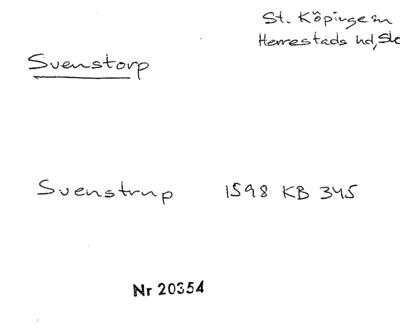 St. Köpinge sn
Herrestads hd, Sk
Svenstorp
Svenstrup 1598 KB 345
Nr 20354